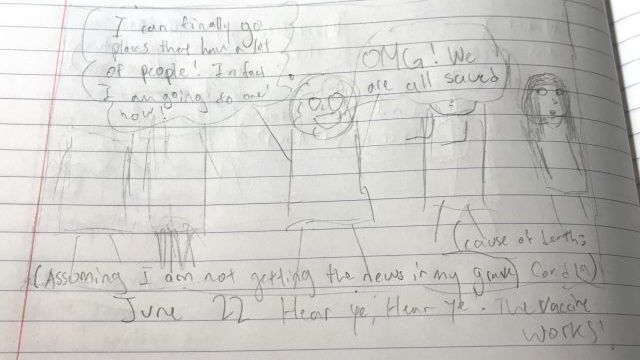 I can finally go
places that have a lot
of people! Infact
I am going to one
now!
OMG! We
are all saved
(cause of death:
(Assuming I am not getting the news in my grave)
June 22 Hear ye, Hear ye. The vaccine
works!